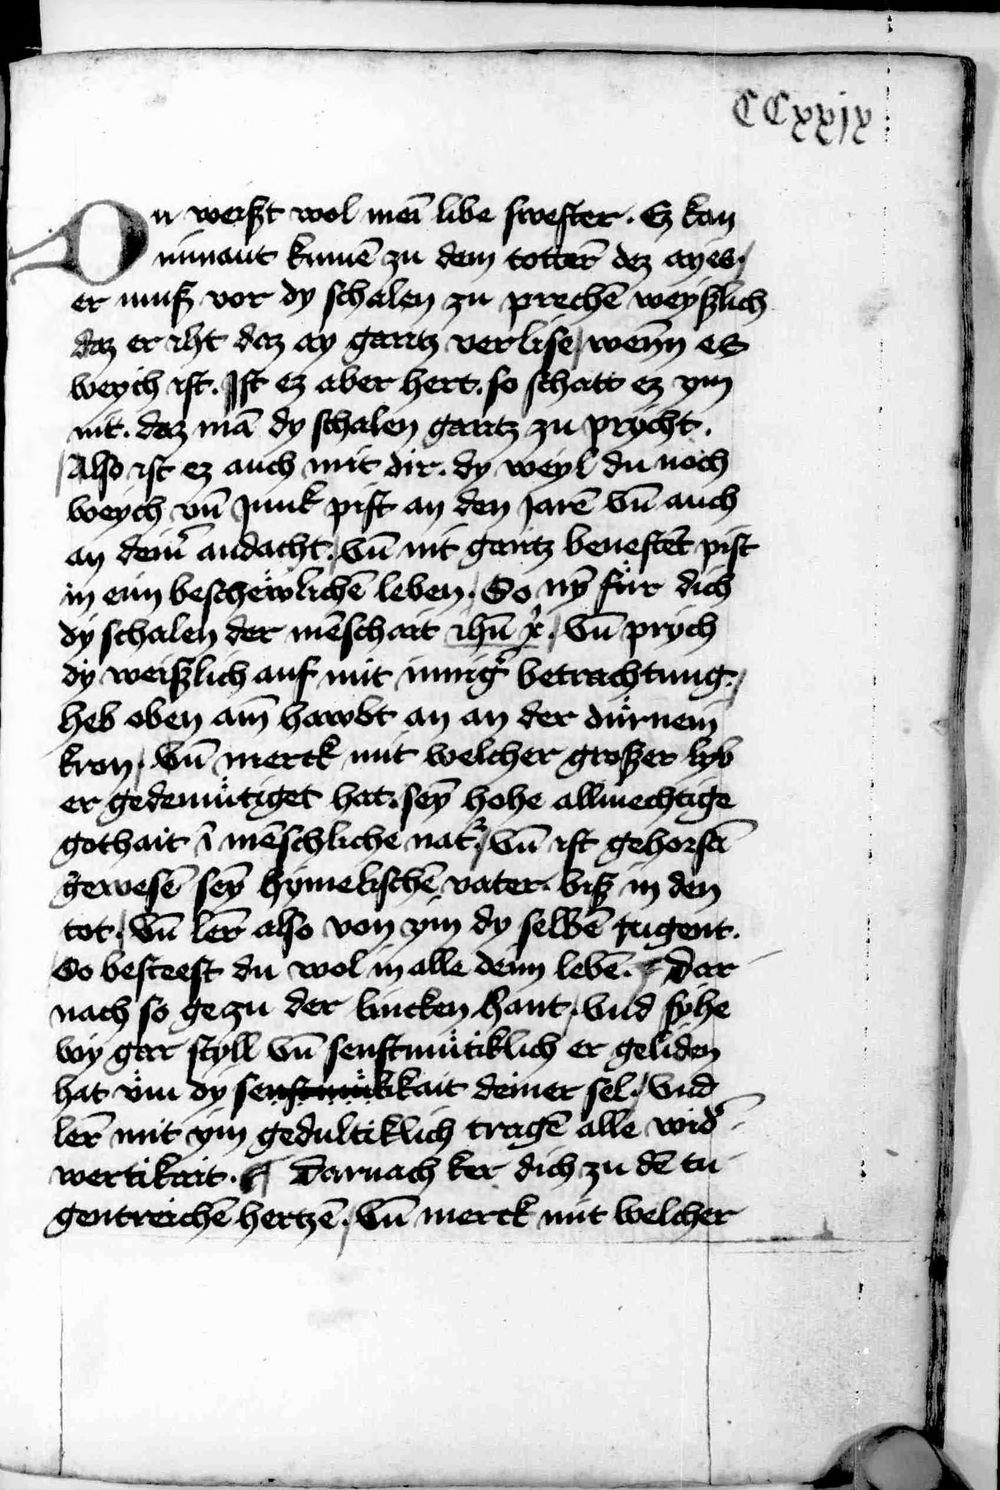 CCxxjx
Du weißt wol mei᷑ libe swester. Ez kan
nimant kumē zu dem totterē dez ayes /
er muß vor dy schalen zu prechē weyßlich
daz er iht daz ay gantz verlise / wenn es
weych ist. Ist ez aber hert. so schatt ez ym
nit. daz mā dy schalen gantz zu pricht.
Also ist ez auch mit dir. dy weyl du noch
weych vn̄ Junk pist an den Jarē Vn̄ auch
an dein᷑ andacht. Vn̄ nit gantz benestet pist
in eim beschewlichē leben. So ny̅ für dich
dy schalen der mēschait ihū x᷑. / Vn̄ prich
dy weißlich auf mit innig᷑ betrachtung. /
heb oben am̄ hawbt an an der dürnein
kron / Vn̄ merck mit welcher großer lyb
er gedemütiget hat. sey̅ hohe allmechtige
gothait ī mēschliche nat᷑ / Vn̄ ist gehorsā
gewesē sey̅ hymelischē vater. biß in den
tot / Vn̄ lēr also von ym dy selbē tugent.
So besteest du wol in alle deim lebē. Dar
nach so ge zu der lincken hant / Vnd syhe
wy gar styll Vn̄ senftmütiklich er geliden
hat vm dy selikait deiner sel / Vnd
lēr mit ym gedultiklich tragē alle wid᷑
wertikait. Darnach ker dich zu dē tu
gentreichē hertzē. / Vn̄ merck mit welcher